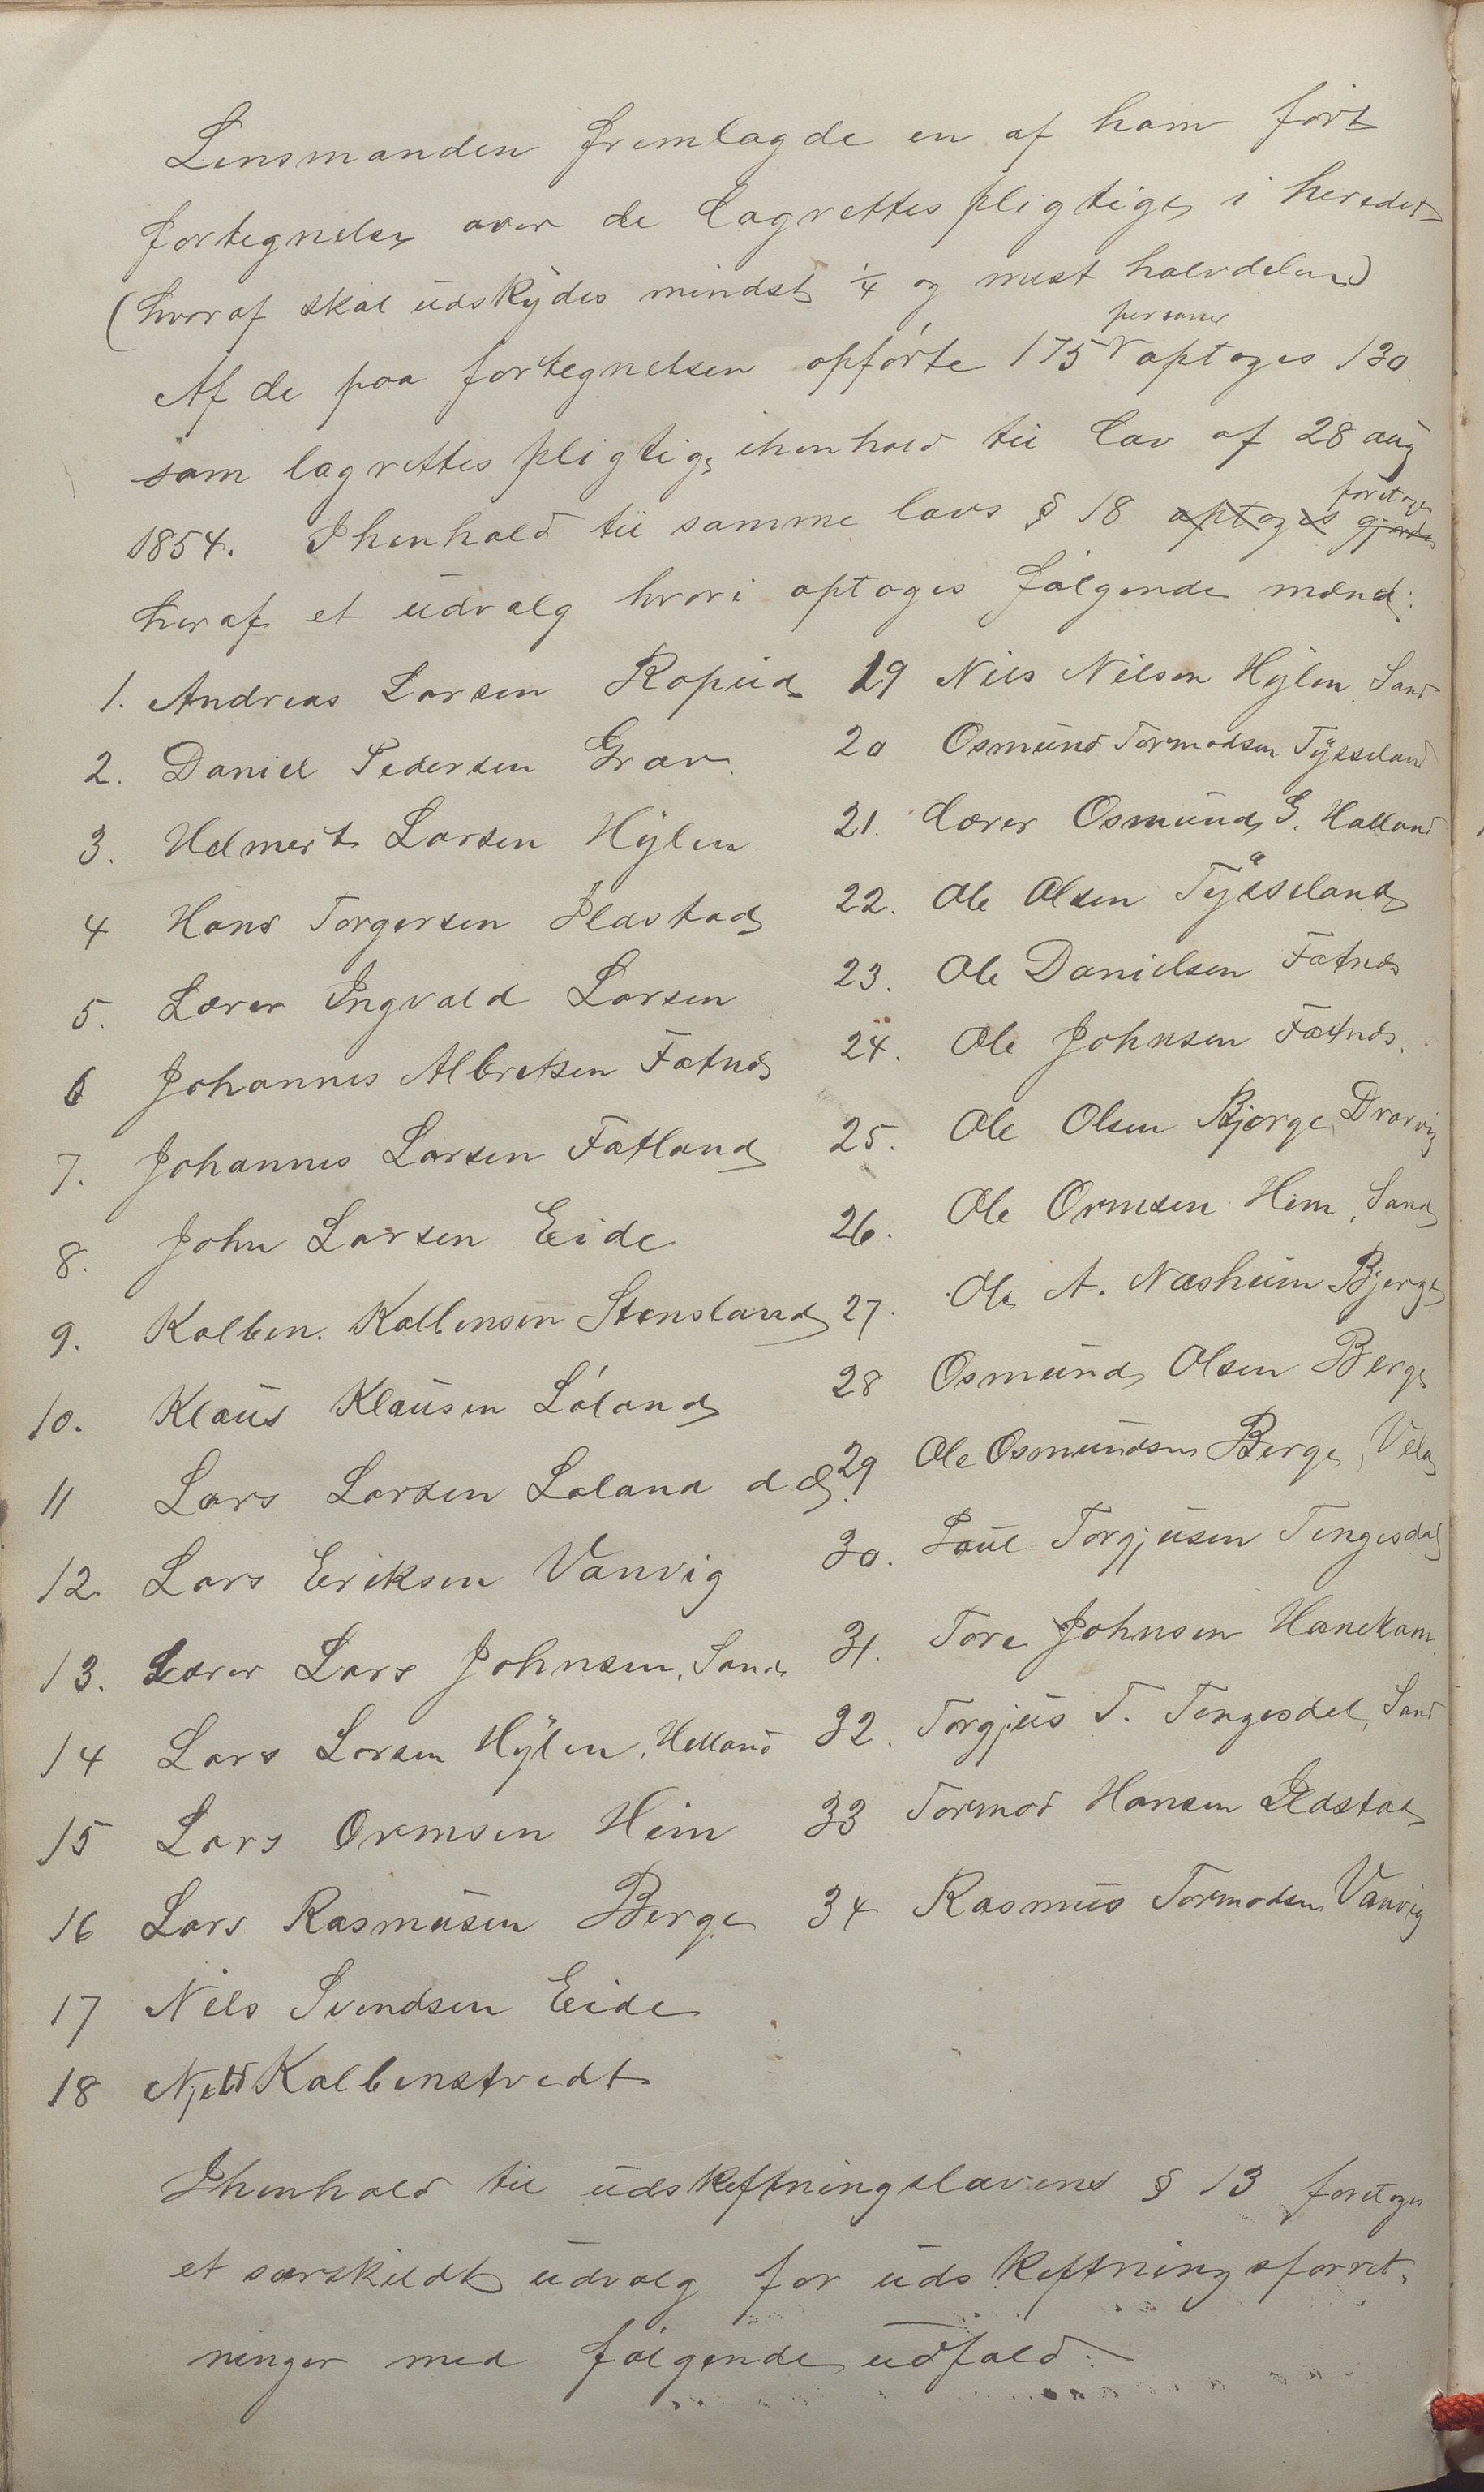 Lensmanden fremlagde en af ham ført
fortegnelse over de lagrettespligtige i heredet
(hvoraf skal udskydes mindst ¼ og mest halvdelen)
personer
Af de paa fortegnelsen opførte 175 optoges 130
som lagrettespligtige ihenhold til lov af 28 aug
foretoges
1854. Ihenhold til samme lovs § 18 optoges gjordes
heraf et udvalg hvori optoges følgende mænd:
1. Andreas Larsen Ropeid
2. Daniel Pedersen Grov.
3. Helmert Larsen Hylen
4 Hans Torgersen Ilastad
5. Lærer Ingvald Larsen
6 Johannes Albretsen Fatnes
7. Johannes Larsen Fatland
8. John Larsen Eide
9. Kolben. Kolbensen Stensland
10. Klaus Klausen Løland
11 Lars Larsen Løland d. æ.
12. Lars Eriksen Vanvig
13. Lærer Lars Johnsen, Sand
14 Lars Larsen Hylen, Helland
15 Lars Ormsen Heim
16 Lars Rasmusen Berge
17 Nils Svendsen Eide
18 Njeld Kolbenstvedt
19 Nils Nilsen Hylen, Sand
20 Osmund Tormodsen Tysseland
21. Lærer Osmund G. Halland
22. Ole Olsen Tysseland
23. Ole Danielsen Fatnes
24. Ole Johnsen Fatnes.
25. Ole Olsen Bjerge, Drarvig
26. Ole Ormsen Heim, Sand
27. Ole A. Næsheim Bjerge
28 Osmund Olsen Berge
29 Ole Osmundsen Berge, Vela
30. Poul Torgjusen Tengesdal
31. Tore Johnsen Hanekam
32. Torgjus T. Tengesdal, Sand
33 Tormod Hansen Ilastad
34 Rasmus Tormodsen Vanvig
Ihenhold til udskiftningslovens § 13 foretoges
et særskildt udvalg for udskiftningsforret-
ninger med følgende udfald: